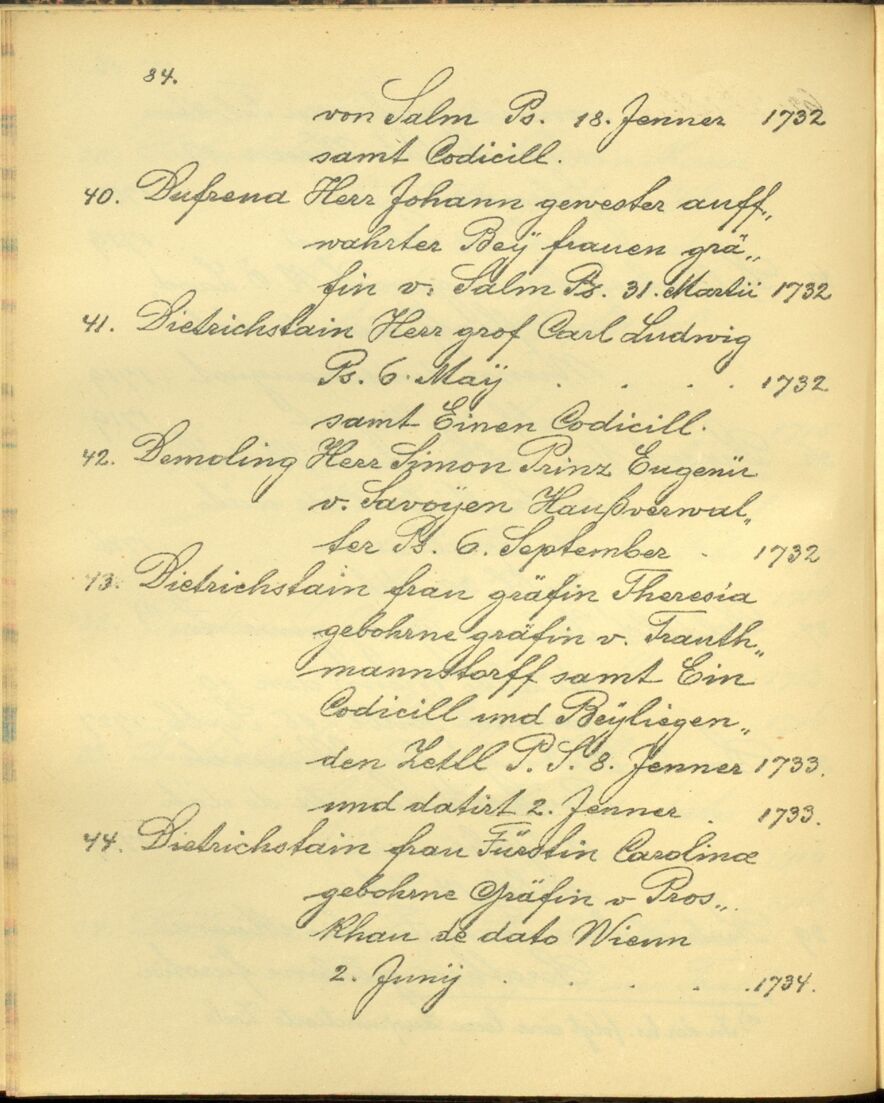 84.
von Salm Ps. 18. Jenner 1732
samt Codicill.
40. Dufrend Herr Johann gewester auff„
wahrter Beÿ frauen grä„
fin v. Salm Ps. 31. Martii 1732
41. Dietrichstain Herr grof Carl Ludwig
Ps. 6. Maÿ . . . . 1732
samt Einen Codicill.
42. Demoling Herr Simon Prinz Eugenii
v. Savoÿen Haußverwal„
ter Ps. 6. September . 1732
43. Dietrichstain frau gräfin Theresia
gebohrne gräfin v. Trauth„
mannstorff samt Ein
Codicill und Beÿliegen„
den Zetll P. S. 8. Jenner 1733.
und datirt 2. Jenner . 1733.
44. Dietrichstain frau Fürstin Carolinæ
gebohrne Gräfin v Pros„
khau de dato Wienn
2. Junij . . . . . 1734.